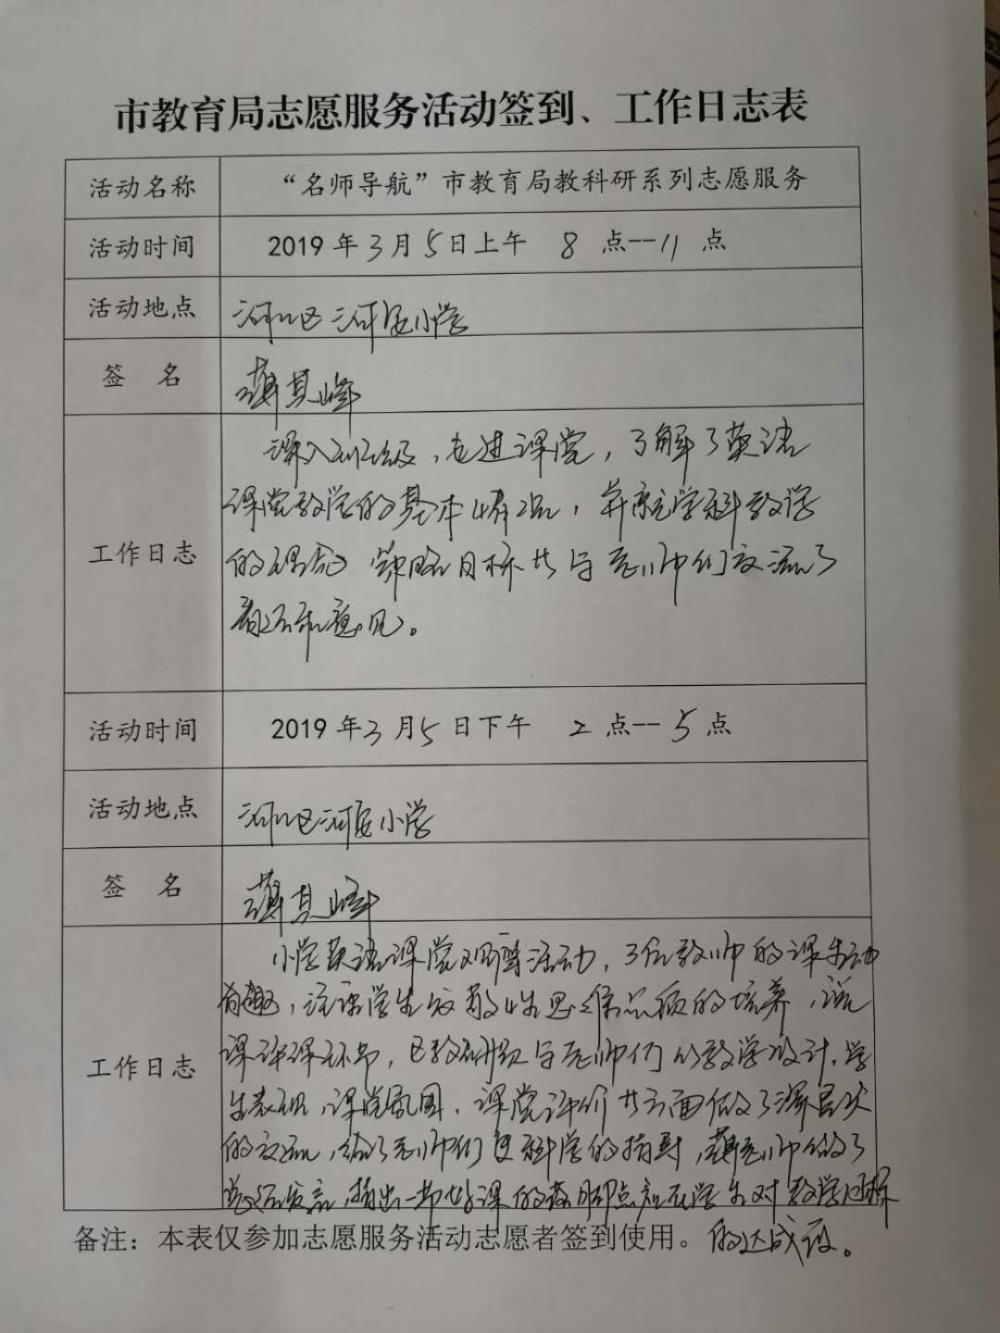 市教育局志愿服务活动签到、工作日志表
活动名称 “名师导航”市教育局教科研系列志愿服务
活动时间 2019年3月5日上午 8点--11点
活动地点 河口区河辰小学
签 名 薄其峰
工作日志
深入班级，走进课堂，了解了英语
课堂教学的基本情况，并就学科教学
的理念 策略目标等与老师们交流了
看法和意见。
活动时间 2019年3月5日下午 2点--5点
活动地点 河口区河辰小学
签 名 薄其峰
工作日志
小学英语课堂观摩活动，3位教师的课生动
有趣，注课学生发散性思维品质的培养，说
课评课环节，区教研员与老师们从教学设计、学
生表现、课堂氛围、课堂评价等方面做了深层次
的交流，给了老师们更科学的指导，薄老师做了
总结发言，指出一节好课的落脚点应在学生对教学目标
的达成度。
备注：本表仅参加志愿服务活动志愿者签到使用。